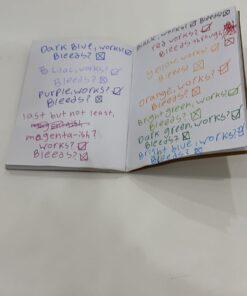 Dark Blue, works? ☑
Bleeds? ☒
Lilac, works? ☑
Bleeds? ☒
Purple, works? ☑
Bleeds? ☒
last but not least,
magenta-ish?
works? ☑
Bleeds? ☒
Black, works? ☑ Bleeds ☒
red works? ☑
Bleeds through
yellow, works? ☑
Bleeds? ☒
Orange, works? ☑
Bleeds? ☒
Bright green, works? ☑
Bleeds? ☒
Dark green, works? ☑
Bleeds? ☒
Bright blue, works? ☑
Bleeds? ☒